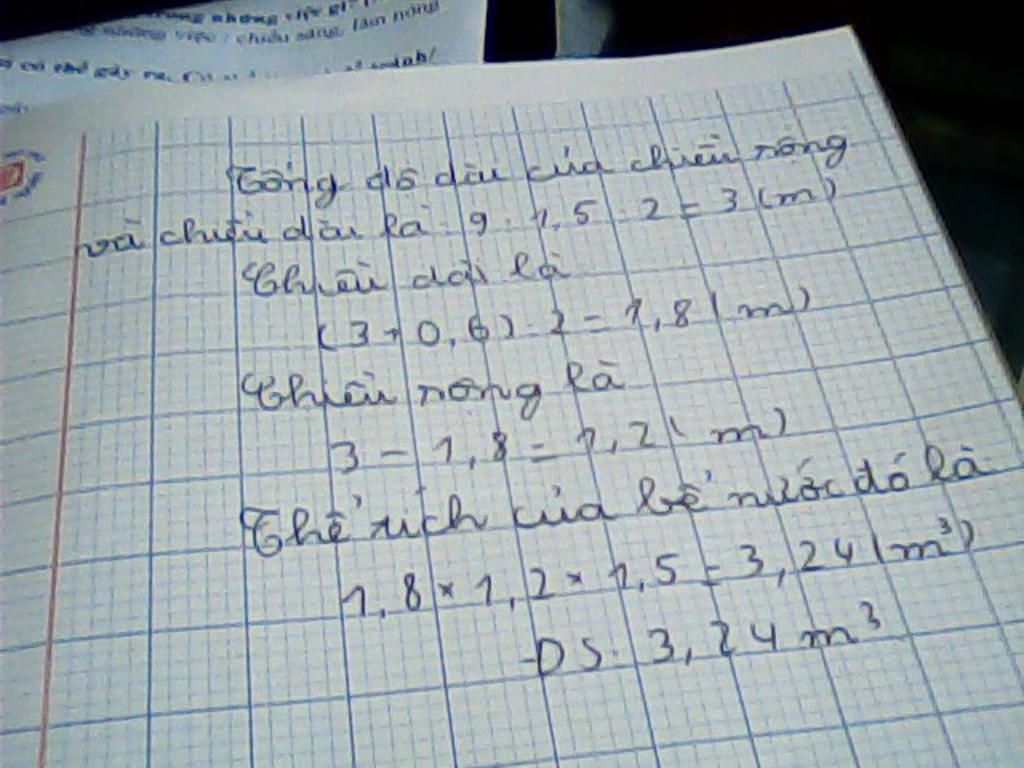 những việc gì
việc: chiếu sáng, làm nóng
Tổng độ dài của chiều rộng
và chiều dài là: 9 : 1,5 : 2 = 3 (m)
Chiều dài là
(3 + 0,6) : 2 = 1,8 (m)
Chiều rộng là
3 - 1,8 = 1,2 (m)
Thể tích của bể nước đó là
1,8 × 1,2 × 1,5 = 3,24 (m³)
ĐS: 3,24 m³